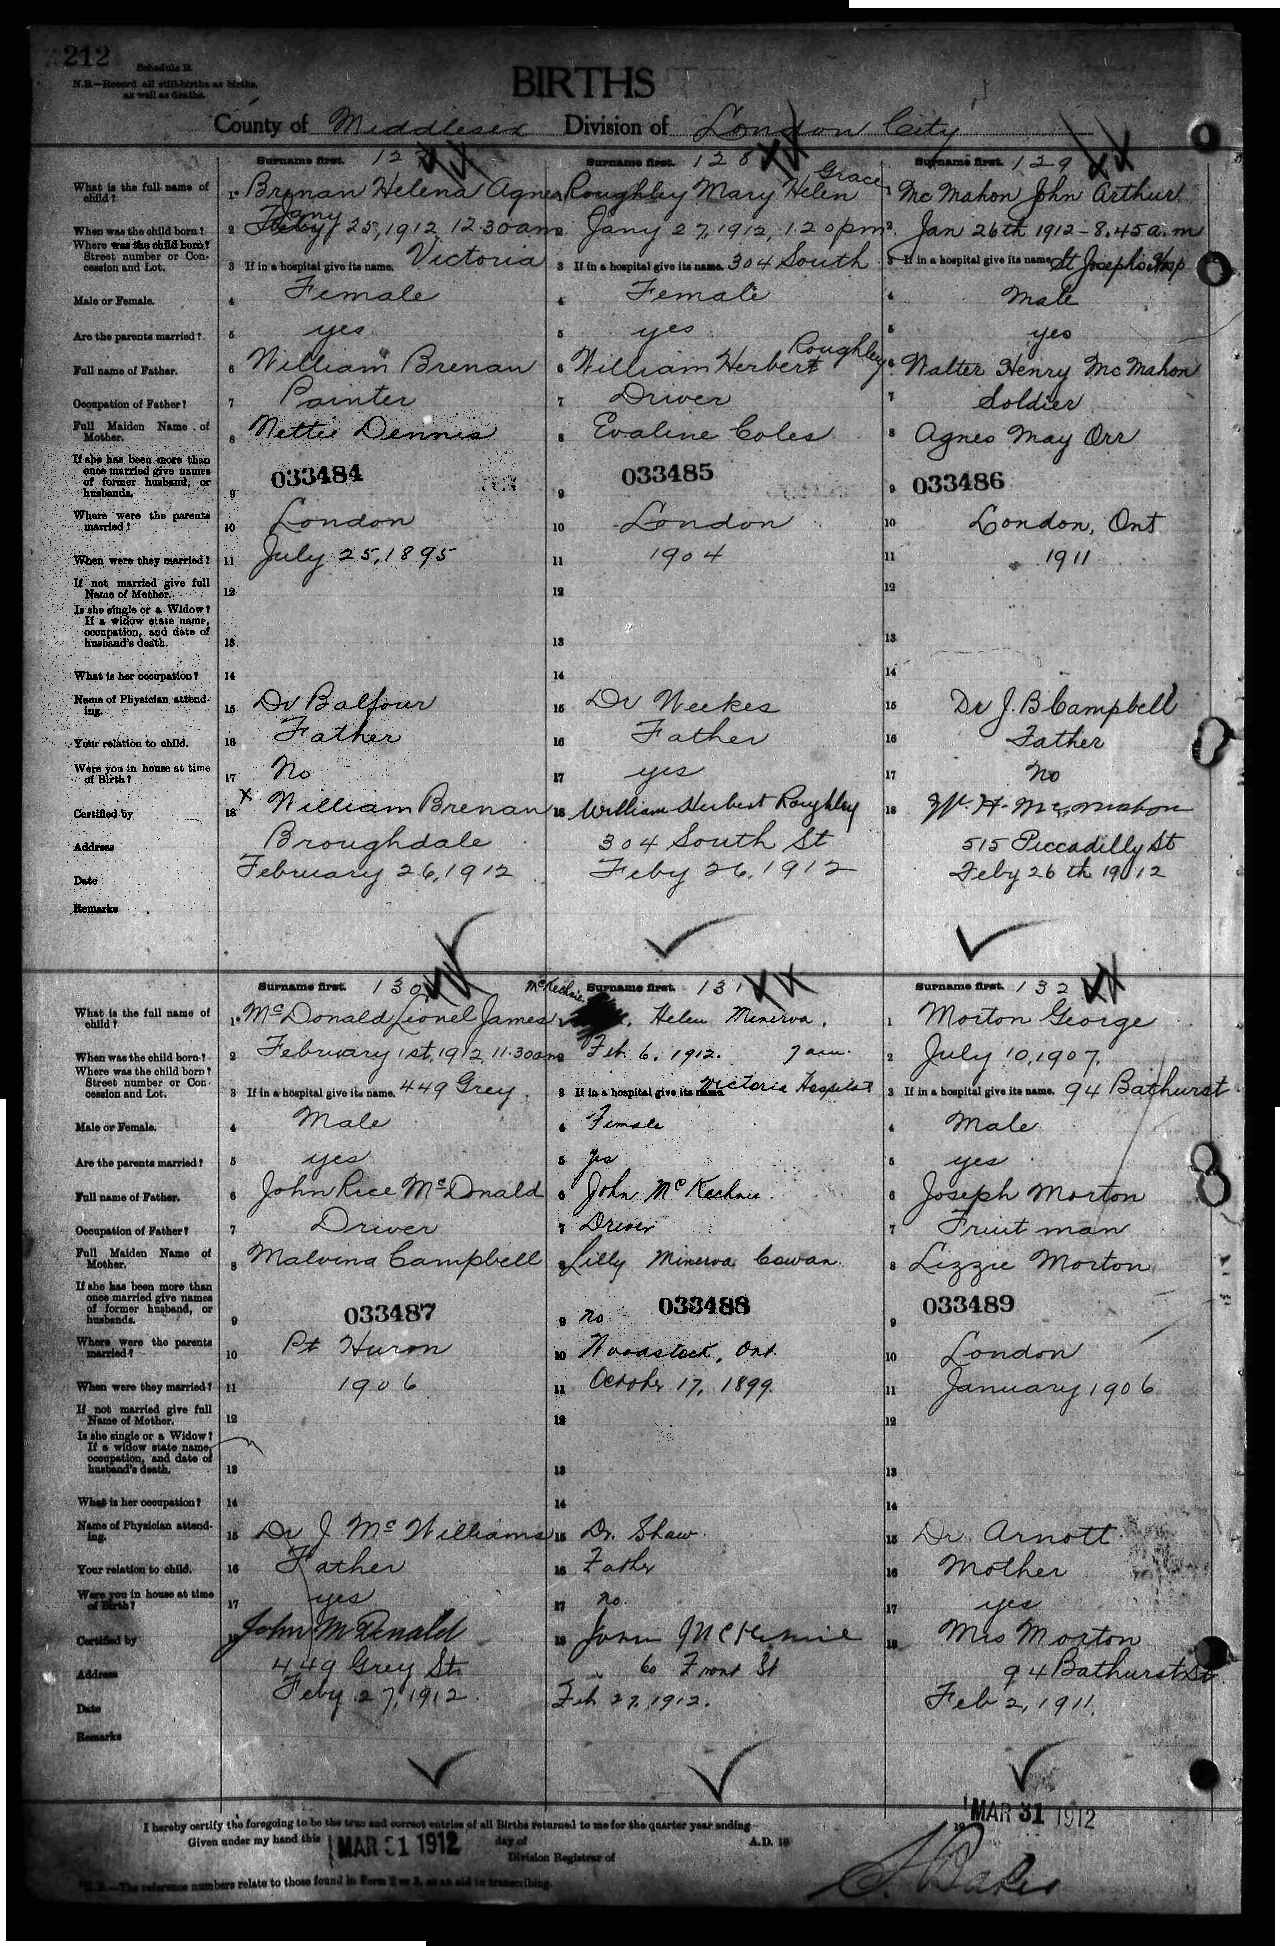 212
Schedule B.
N.B.—Record all still-births as births, as well as deaths.
BIRTHS
County of Middlesex Division of London City
Surname first. 127
Surname first. 128
Surname first. 129
What is the full name of child?
1 Brenan Helena Agnes
Roughley Mary Helen Grace
McMahon John Arthur
When was the child born?
2 Jany 25, 1912 12.30 am
2 Jany 27, 1912, 1.20 pm
2 Jan 26th 1912 - 8.45 a.m
Where was the child born? Street number or Concession and Lot.
3 If in a hospital give its name. Victoria
3 If in a hospital give its name. 304 South
3 If in a hospital give its name St Joseph's Hosp
Male or Female.
4 Female
4 Female
4 Male
Are the parents married?
5 yes
5 yes
5 yes
Full name of Father.
6 William Brenan
6 William Herbert Roughley
6 Walter Henry McMahon
Occupation of Father?
7 Painter
7 Driver
7 Soldier
Full Maiden Name of Mother.
8 Nettie Dennis
8 Evaline Coles
8 Agnes May Orr
If she has been more than once married give names of former husband, or husbands.
9 033484
9 033485
9 033486
Where were the parents married?
10 London
10 London
10 London, Ont
When were they married?
11 July 25, 1895
11 1904
11 1911
If not married give full Name of Mother.
12
12
12
Is she single or a Widow? If a widow state name, occupation, and date of husband's death.
13
13
13
What is her occupation?
14
14
14
Name of Physician attending.
15 Dr Balfour
15 Dr Weekes
15 Dr J. B Campbell
Your relation to child.
16 Father
16 Father
16 Father
Were you in house at time of Birth?
17 No
17 yes
17 No
Certified by
18 x William Brenan
18 William Herbert Roughley
18 W. H. McMahon
Address
Broughdale
304 South St
515 Piccadilly St
Date
February 26, 1912
Feby 26, 1912
Feby 26th 1912
Remarks
Surname first. 130
Surname first. 131
Surname first. 132
What is the full name of child?
1 McDonald Lionel James
McKechnie Helen Minerva.
1 Morton George
When was the child born?
2 February 1st, 1912 11.30 am
2 Feb. 6. 1912. 7 am.
2 July 10, 1907.
Where was the child born? Street number or Concession and Lot.
3 If in a hospital give its name. 449 Grey
3 If in a hospital give its name. Victoria Hospital
3 If in a hospital give its name. 94 Bathurst
Male or Female.
4 Male
4 Female
4 Male
Are the parents married?
5 yes
5 Yes
5 yes
Full name of Father.
6 John Rice McDonald
6 John McKechnie.
6 Joseph Morton
Occupation of Father?
7 Driver
7 Driver
7 Fruit man
Full Maiden Name of Mother.
8 Malvina Campbell
8 Lilly Minerva Cowan.
8 Lizzie Morton
If she has been more than once married give names of former husband, or husbands.
9 033487
9 no 033488
9 033489
Where were the parents married?
10 Pt Huron
10 Woodstock, Ont.
10 London
When were they married?
11 1906
11 October 17, 1899.
11 January 1906
If not married give full Name of Mother.
12
12
12
Is she single or a Widow? If a widow state name, occupation, and date of husband's death.
13
13
13
What is her occupation?
14
14
14
Name of Physician attending.
15 Dr J. McWilliams
15 Dr. Shaw.
15 Dr Arnott
Your relation to child.
16 Father
16 Father
16 Mother
Were you in house at time of Birth?
17 yes
17 no.
17 yes
Certified by
18 John McDonald
18 John McKechnie
18 Mrs Morton
Address
449 Grey St.
60 Front St
94 Bathurst St
Date
Feby 27, 1912.
Feb 27, 1912.
Feb 2, 1911.
Remarks
I hereby certify the foregoing to be the true and correct entries of all Births returned to me for the quarter year ending MAR 31 1912
Given under my hand this MAR 31 1912 day of A.D. 19
Division Registrar of
N.B.—The reference numbers relate to those found in Form 2 or 3, as an aid in transcribing.